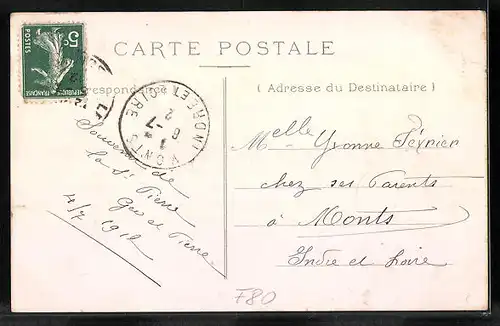 CARTE POSTALE
Correspondence
( Adresse du Destinataire )
5c
POSTES
REPUBLIQUE FRANCAISE
MONTS
INDRE ET LOIRE
8 -7
Souvenir de
la St Pierre
Geo et Pierre
4/7 1912
Melle Yvonne Février
chez ses Parents
à Monts
Indre et Loire
F80